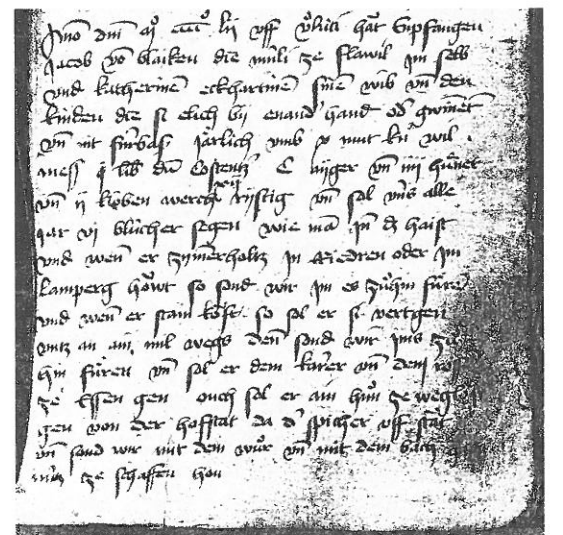 Anno dm̄ mº ccccº lii uff Vͦlrici hāt Enpfangen
Jacob vō blaiken die mùli ze flawil jm selb
vnd katherinen eckhartinen sinē wib vn̄ den
kinden die si elich bij enand̓ hand od̓ gwīnet
vn̄ nit fùrbas Järlich vmb x mut kn̄ wil.
mess j lib d̄n Costentz̓ C aijger vn̄ iiij hùner
vn̄ ij kloben werch rijstig vn̄ sol vns alle
jar vj blùcher segen wie mā jn dz haist
vnd wen̄ er zimerholtz jn Riedren oder jm
lamperg hōwt so sond wir jm es zuͦhin fùrē
vnd wen̄ er stain kōft so sol er si vertgen
vntz an ain mil wegs den̄ sond wir jms zuͦ
hin fùren vn̄ sol er dem karrer vn̄ dem ross
ze Essen gen ouch sol er ain hus ze wegen
gen von der hofstat da d̓ spicher uff stāt
vn̄ sond wir mit dem wuͦr vn̄ mit dem bach
nùtz ze schaffen hon